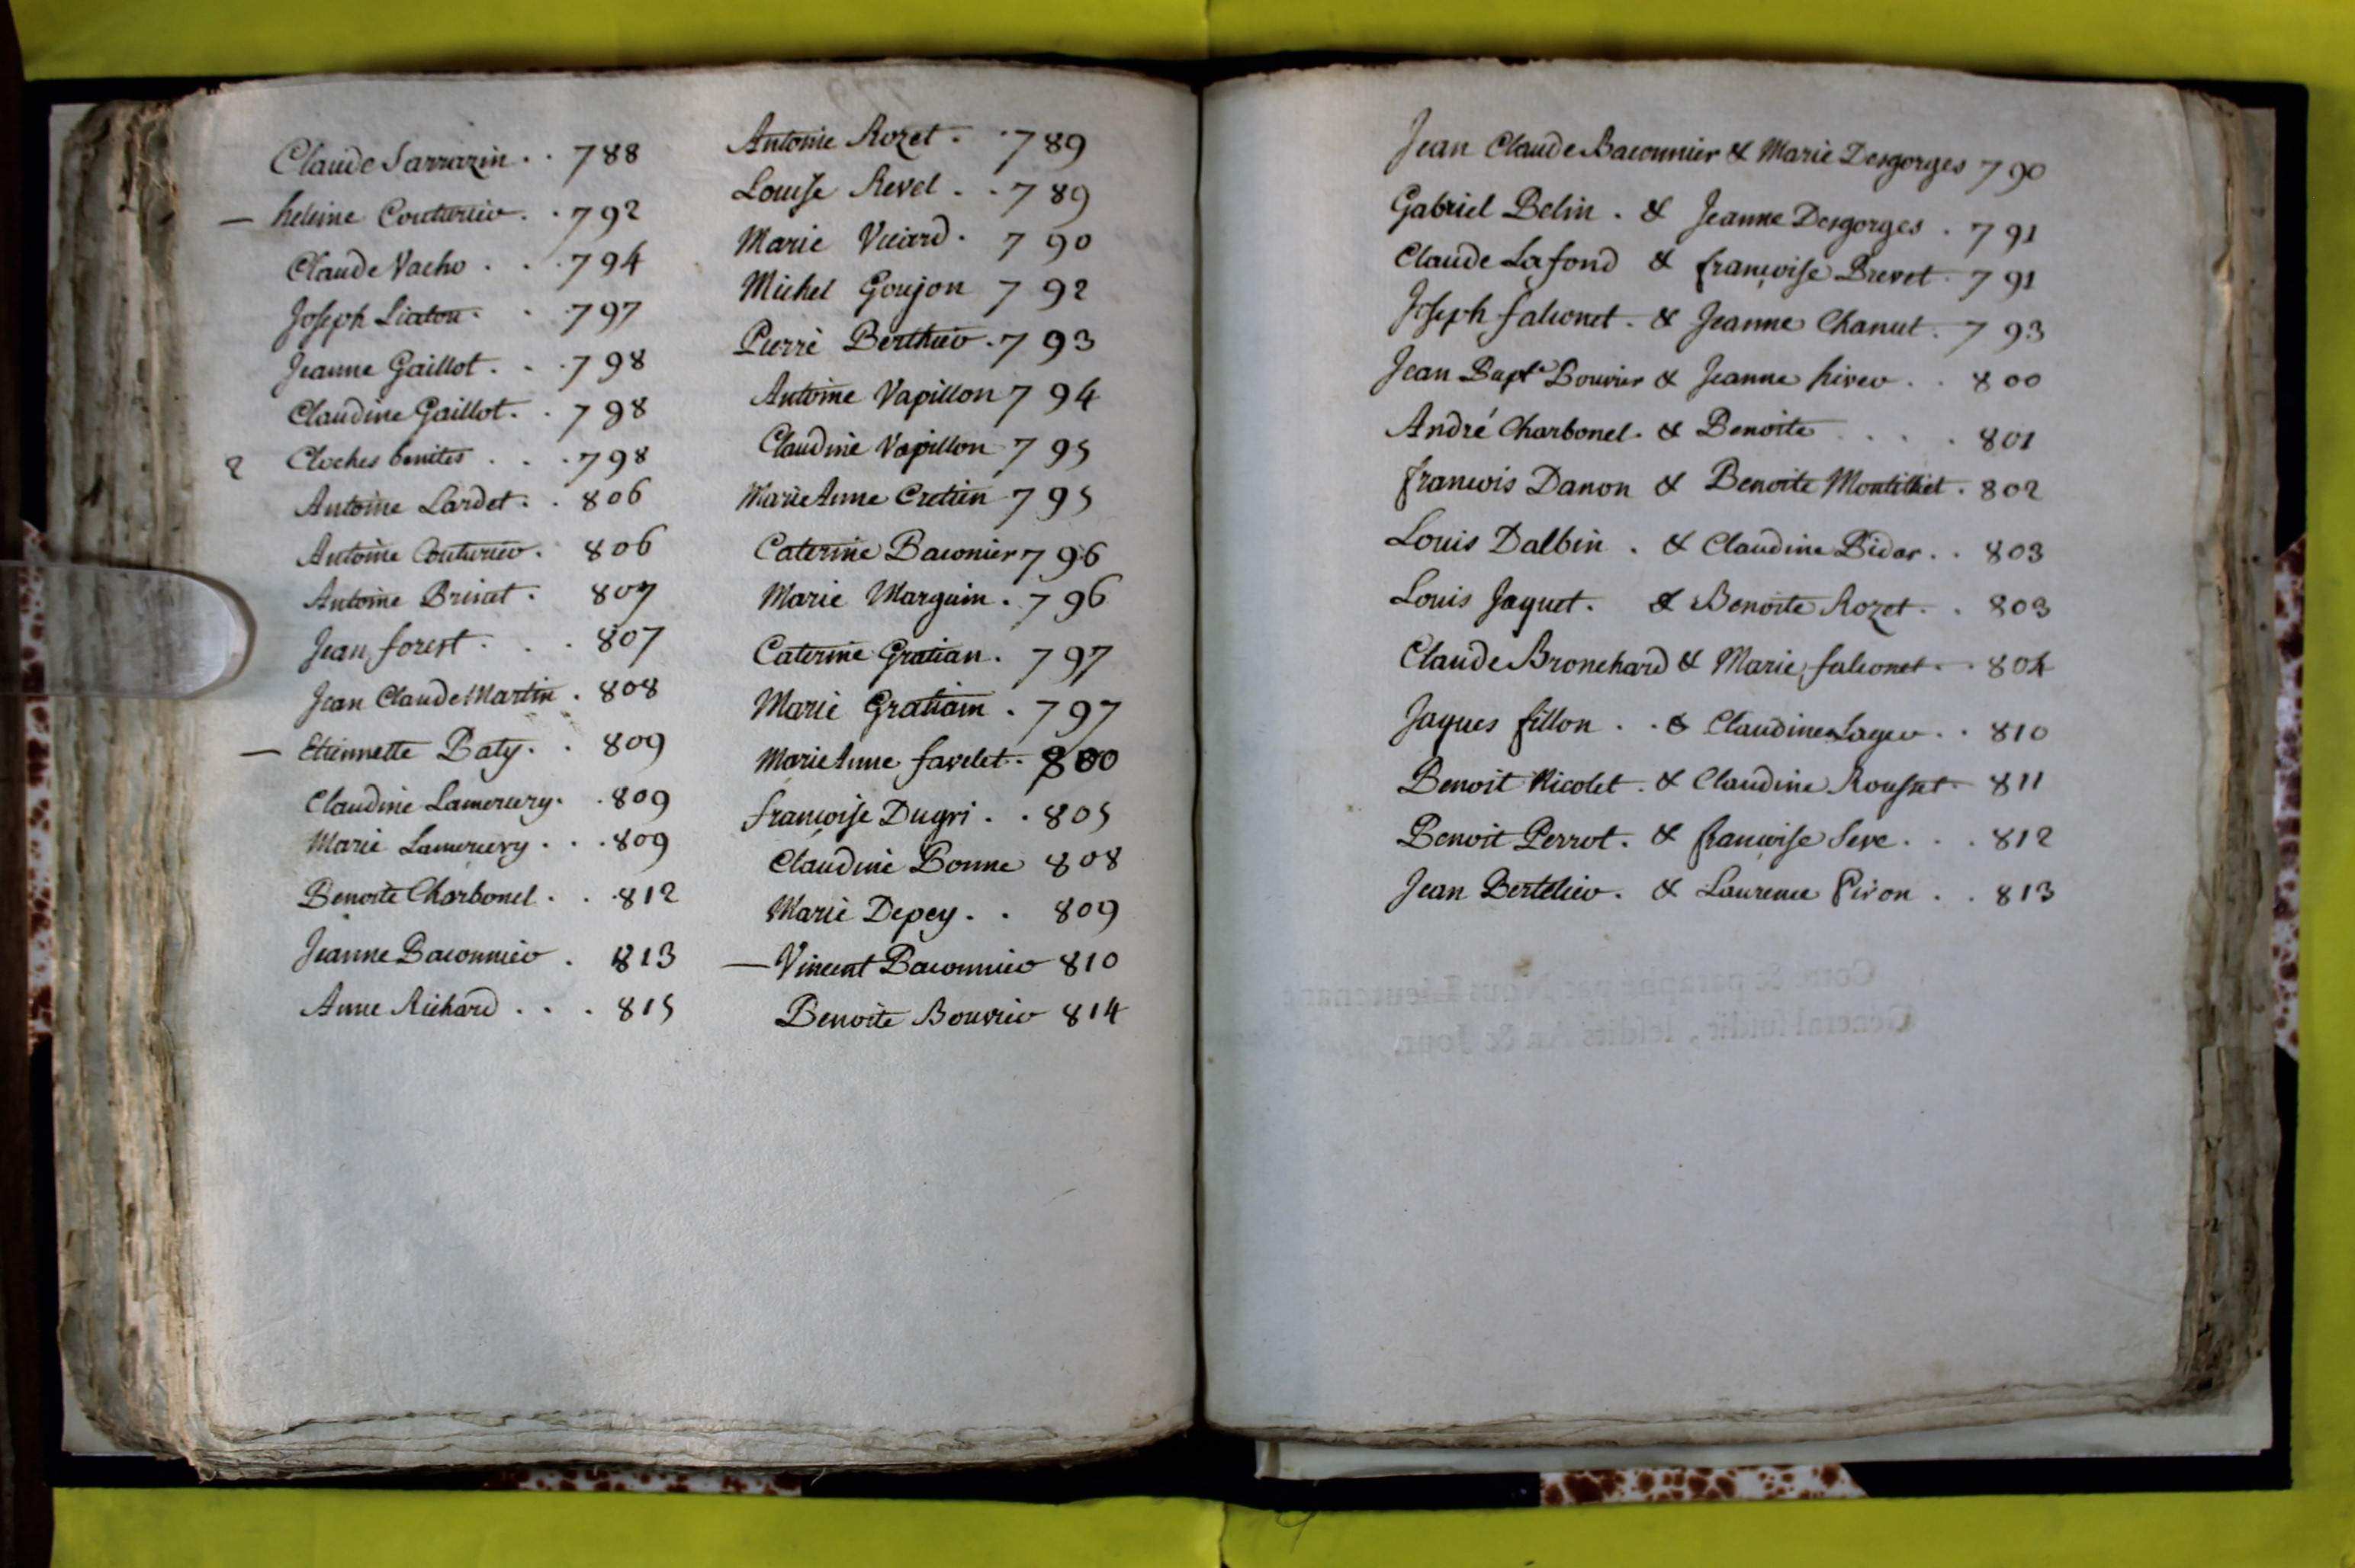 Claude Sarrazin . . 788
— heleine Couturier . . 792
Claude Vacho . . . 794
Joseph Liaton . . 797
Jeanne Gaillot . . . 798
Claudine Gaillot . . 798
Cloches benites . . . 798
Antoine Lardet . . 806
Antoine Couturier . 806
Antoine Brivat . 807
Jean forest . . . 807
Jean Claude Martin . 808
— Etiennette Baty . . 809
Claudine Lamercery . . 809
Marie Lamercery . . . 809
Benoite Charbonel . . . 812
Jeanne Baconnier . 813
Anne Richard . . . 815
Antoine Rozet . . 789
Louise Revel . . 789
Marie Viciard . 790
Michel Goujon 792
Pierre Berthier . 793
Antoine Vapillon 794
Claudine Vapillon 795
Marie Anne Cretien 795
Caterine Baconier 796
Marie Marguin . 796
Caterine Gratian . 797
Marie Gratiain . 797
Marie Anne favelet . 800
francoise Dugri . . 805
Claudine Bonne 808
Marie Depey . . 809
— Vincent Baconnier 810
Benoite Bouvier 814
Jean Claude Baconnier & Marie Desgorges 790
Gabriel Belin . & Jeanne Desgorges . 791
Claude Lafond & françoise Brevet . 791
Joseph falconet . & Jeanne Chanut . 793
Jean Bapte Bouvier & Jeanne hiver . . 800
André Charbonel . & Benoite . . . . 801
francois Danon & Benoite Montilliet . 802
Louis Dalbin . & Claudine Bidar . . 803
Louis Jaquet . & Benoite Rozet . . 803
Claude Bronchard & Marie falconet . . 804
Jaques fillon . . & Claudine Lager . . 810
Benoit Nicolet . & Claudine Rousset . 811
Benoit Perrot . & françoise Seve . . . 812
Jean Bertelier . & Laurence Piron . . 813